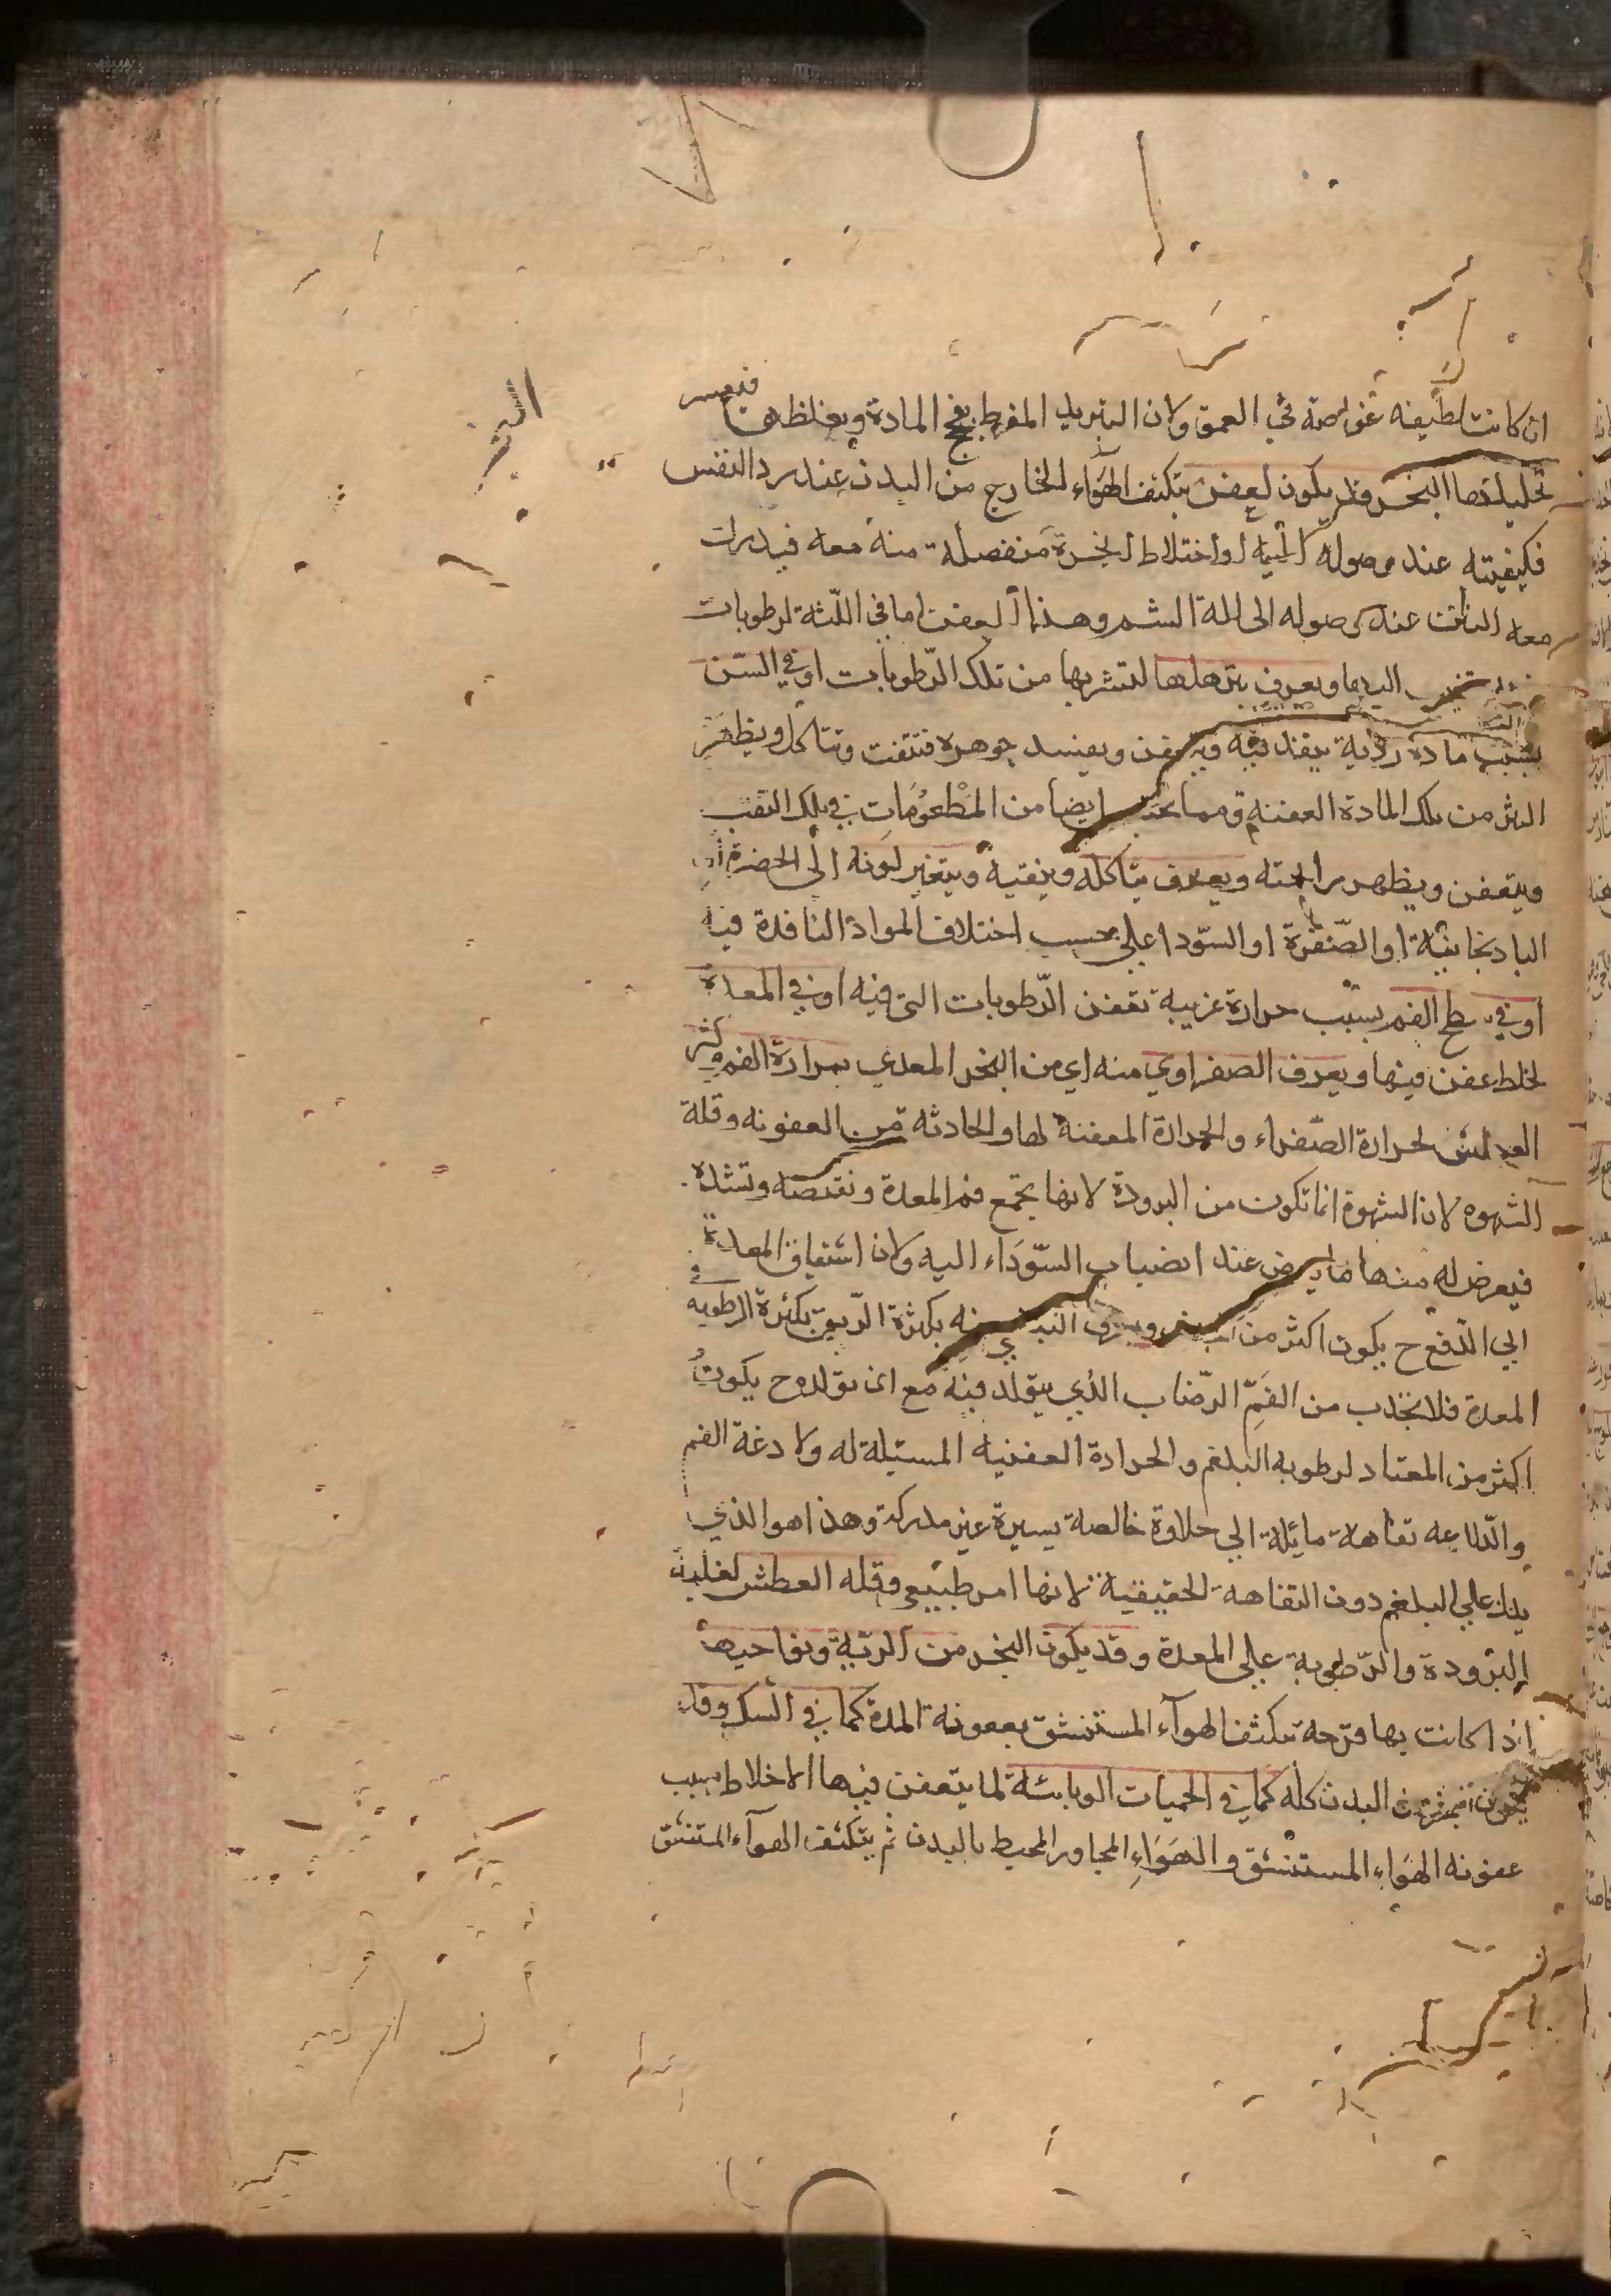 ان كانت لطيفه غواصة في العمق ولان التبريد المفرط يفج المادة ويغلظها فيعسر
البخر
تحليلها البخر وقد يكون لعفن يتكيف الهواء الخارج من البدن عند رد النفس
فكيفيته عند وصوله اليه او اختلاط ابخرة منفصلة منه معه فيدرك
معه النتن عند وصوله الى الة الشم وهذا العفن اما في اللثة لرطوبات
اليها ويعرف بترهلها لتشربها من تلك الرطوبات او في السن
بسبب مادة ردية ينفذ فيه ويتعفن ويفسد جوهره فتتفتت وتتاكل ويظهر
النثر من تلك المادة العفنه ومما ايضا من المطعومات في تلك الثقب
ويتعفن ويظهر رائحته ويعرف بتاكله وبثقبه ويتغير لونه الى الخضرة او
الباذنجانية او الصفرة او السودا على حسب اختلاف المواد النافذة فيه
او في سطح الفم بسبب حرارة غريبة تعفن الرطوبات التي فيه او في المعدة
لخلط عفن فيها ويعرف الصفراوي منه اي من البخر المعدي بمرارة الفم وكثر
العطش لحرارة الصفراء والحرارة المعفنة لها والحادثه من العفونه وقلة
الشهوه لان الشهوة انما تكون من البرودة لانها تجمع فم المعدة وتقبضه وتشده
فيعرض له منها ما يعرض عند انصباب السوداء اليه ولان اشتياق المعدة
الي الدفع ح يكون اكثر من ويعرف منه بكثرة الريق بكثرة الرطوبه في
المعدة فلا تجذب من الفم الرضاب الذي يتولد فيه مع ان تولده ح يكون
اكثر من المعتاد لرطوبه البلغم والحرارة العفنيه المسيلة له ولا دغة الفم
والدلاعه تفاهة مائلة الي حلاوة خالصة يسيرة غير مدركة وهذا هو الذي
يدل علي البلغم دون التفاهة الحقيقية لانها امر طبيعي وقله العطش لغلبة
البرودة والرطوبة علي المعدة وقد يكون البخر من الرية ونواحيها
اذا كانت بها قرحة تكيف الهواء المستنشق بعفونة المدة كما في السل وقد
يكون البدن كله كما في الحميات الوبائية لما يتعفن فيها الاخلاط بسبب
عفونه الهواء المستنشق والهواء المجاور المحيط بالبدن ثم يتكيف الهواء المستنشق